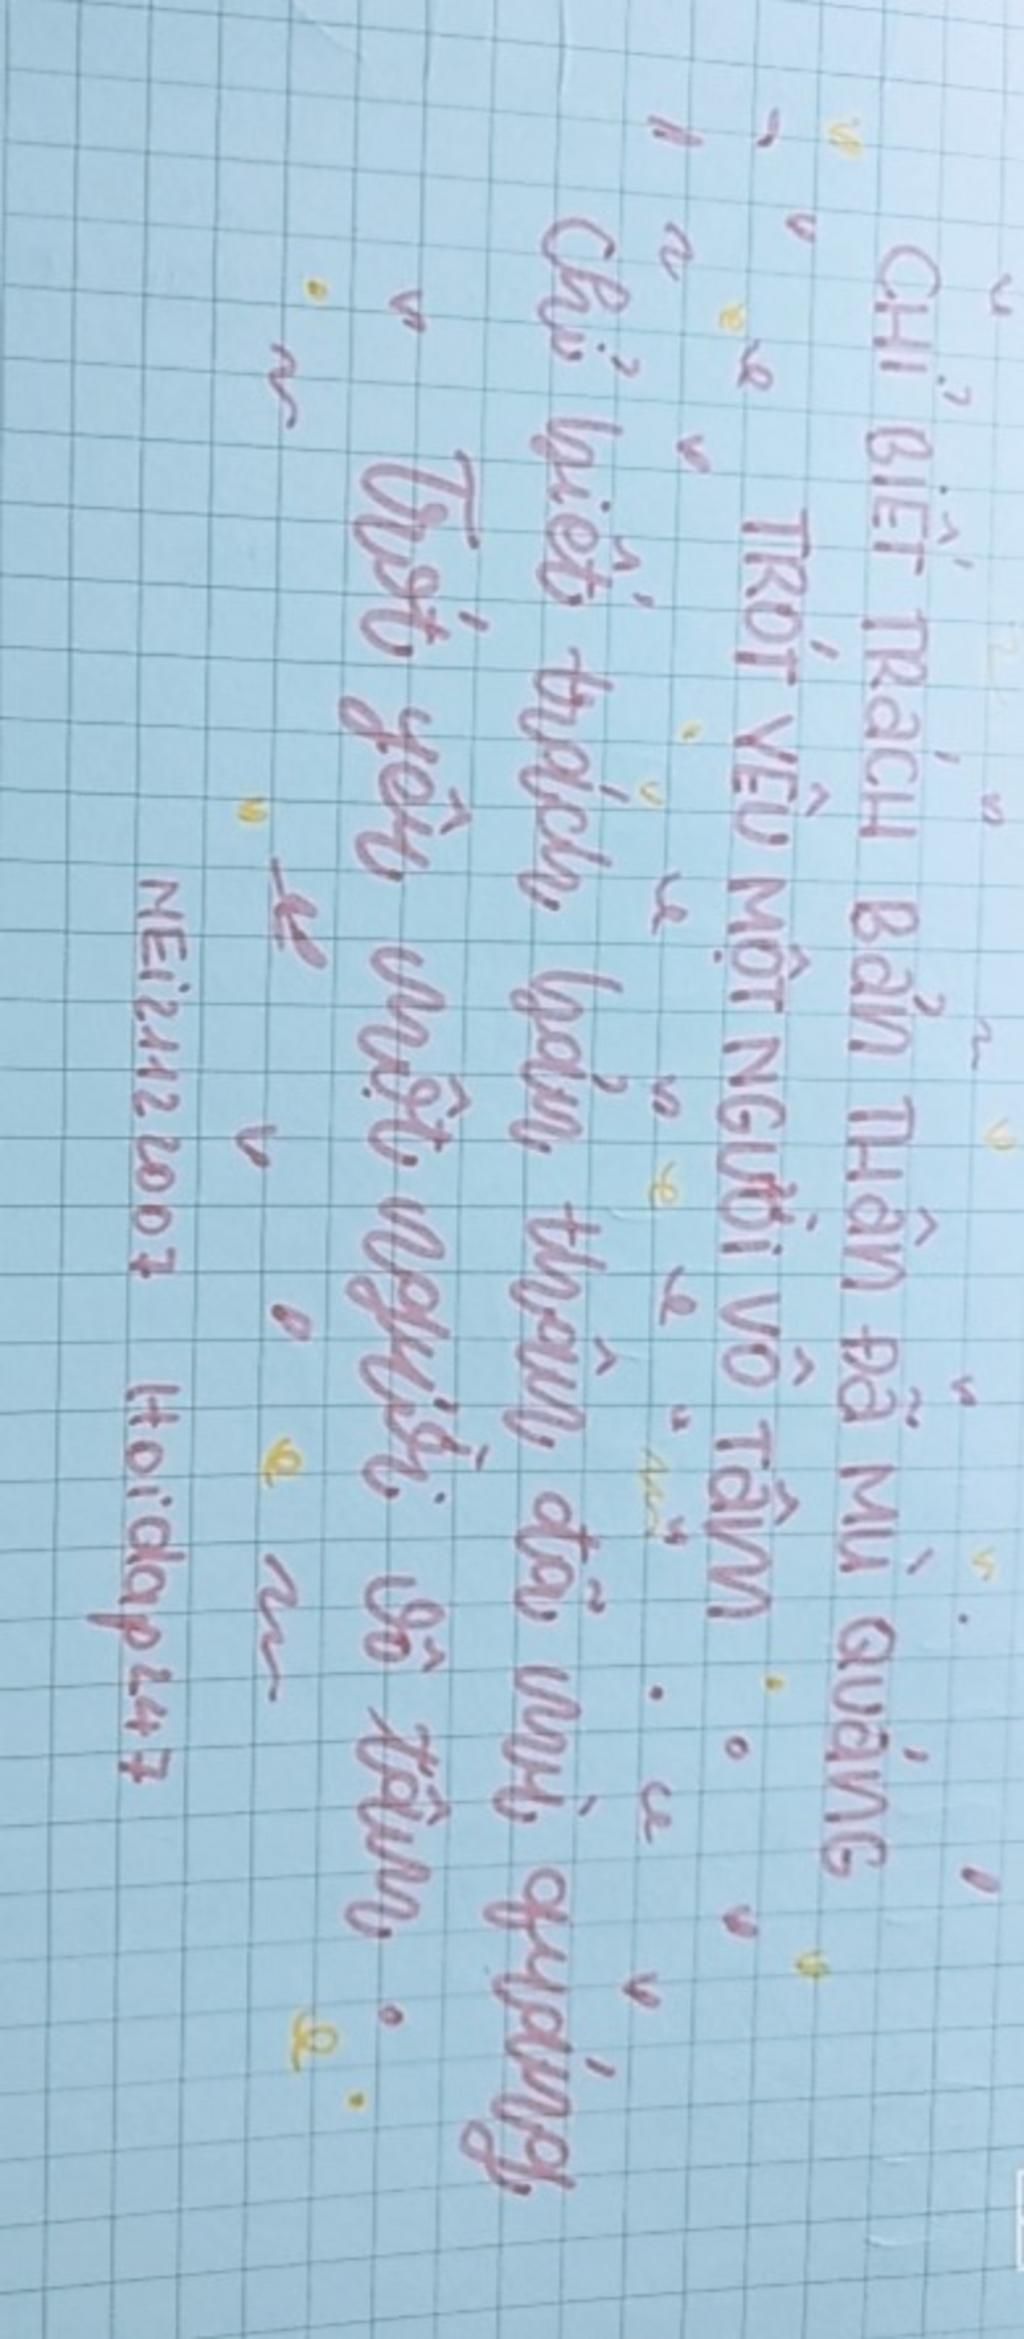 CHỈ BIẾT TRáCH BảN THâN Đã MÙ QUáNG
TRÓT YÊU MỘT NGƯỜI VÔ Tâm
Chỉ biết trách bản thân đã mù quáng
Trót yêu một người vô tâm.
NEi2112 2007 Hoidap247